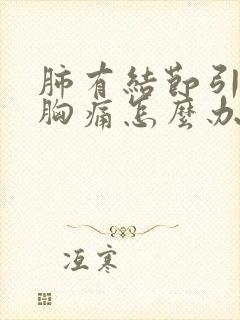 肺有結節引
胸痛怎麼办
冱寒